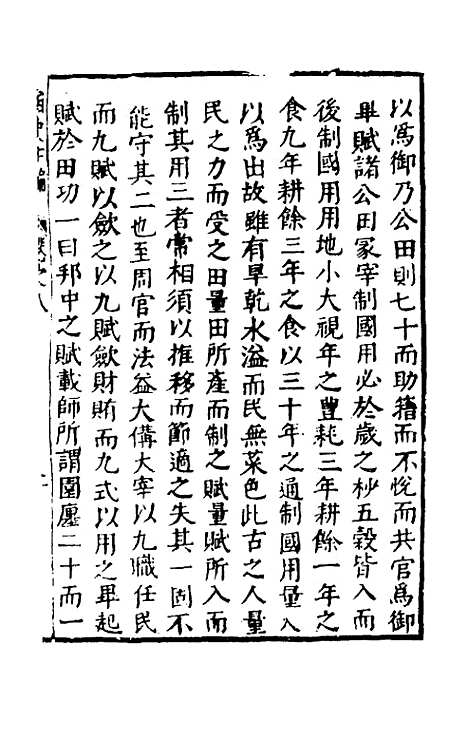 以爲御乃公田則七十而助籍而不悅而共官爲御
畢賦諸公田冢宰制國用必於歲之杪五穀皆入而
後制國用用地小大視年之豐耗三年耕餘一年之
食九年耕餘三年之食以三十年之通制國用量入
以爲出故雖有旱乾水溢而民無菜色此古之人量
民之力而受之田量田所產而制之賦量賦所入而
制其用三者常相須以推移而節適之失其一固不
能守其二也至周官而法益大僃大宰以九職任民
而九賦以斂之以九賦斂財賄而九式以用之畢起
賦於田功一曰邦中之賦載師所謂園廛二十而一